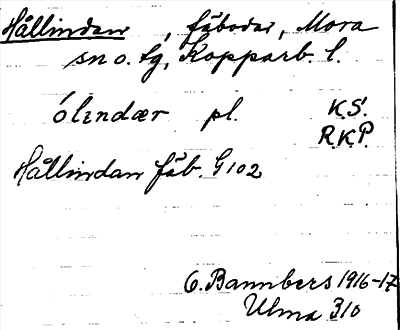 Hållindan, fäbodar, Mora
sn o. tg, Kopparb. l.
ólɪndær pl. K.S.
R.K.P.
Hållindan fäb. G 102
O. Bannbers 1916-17
Ulma 310